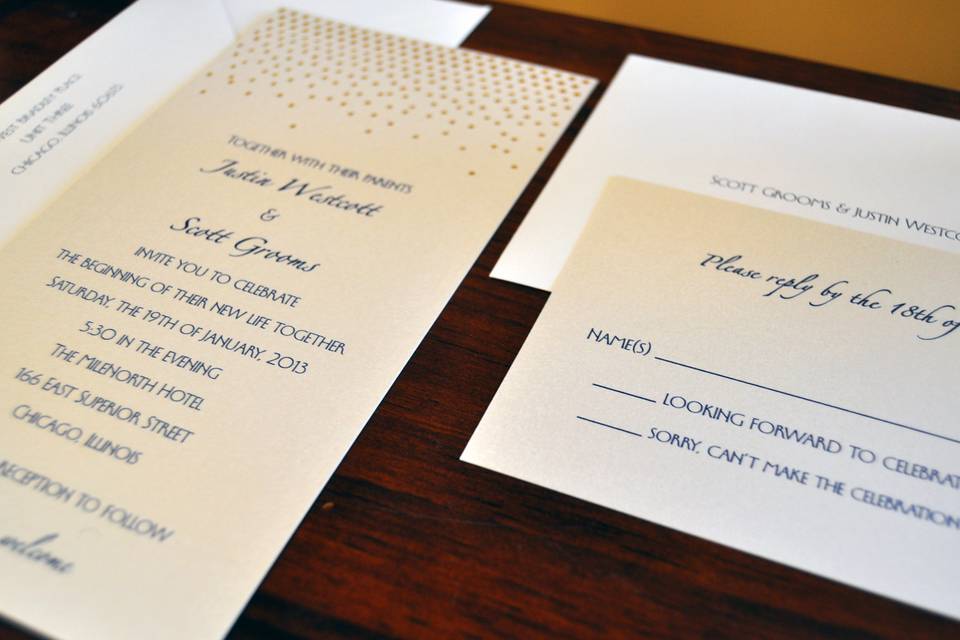 BRADLEY PLACE
UNIT THREE
CHICAGO, ILLINOIS 60613
TOGETHER WITH THEIR PARENTS
Justin Westcott
&
Scott Grooms
INVITE YOU TO CELEBRATE
THE BEGINNING OF THEIR NEW LIFE TOGETHER
SATURDAY, THE 19TH OF JANUARY, 2013
5:30 IN THE EVENING
THE MILENORTH HOTEL
166 EAST SUPERIOR STREET
CHICAGO, ILLINOIS
RECEPTION TO FOLLOW
welcome
SCOTT GROOMS & JUSTIN WESTCO
Please reply by the 18th of
NAME(S)
LOOKING FORWARD TO CELEBRAT
SORRY, CAN'T MAKE THE CELEBRATION